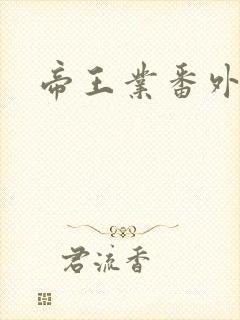 帝王業番外
君流香